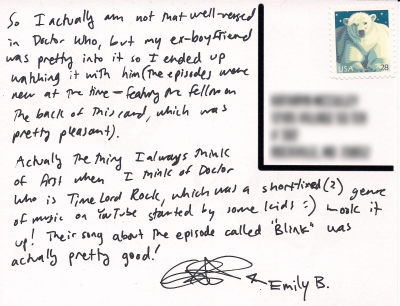 So I actually am not that well-versed
in Doctor Who, but my ex-boyfriend
was pretty into it so I ended up
watching it with him (the episodes were
new at the time — featuring the fellow on
the back of this card, which was
pretty pleasant).
Actually the thing I always think
of first when I think of Doctor
Who is Time Lord Rock, which was a shortlived (?) genre
of music on YouTube started by some kids :) Look it
up! Their song about the episode called "Blink" was
actually pretty good!
Emily B.
USA 28